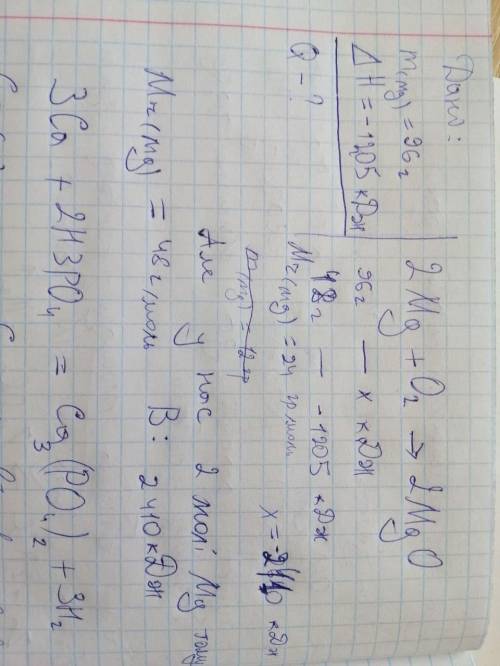 Дано:
m(Mg) = 96 г
ΔH = -1205 кДж
Q - ?
2Mg + O₂ → 2MgO
96г — x кДж
48г — -1205 кДж
Mr(Mg) = 24 гр/моль
x = -2410 кДж
m(Mg) = 12 гр
Але у нас 2 молі Mg тому
Mr(Mg) = 48 г/моль В: 2410 кДж
3Ca + 2H3PO₄ = Ca₃(PO₄)₂ + 3H₂